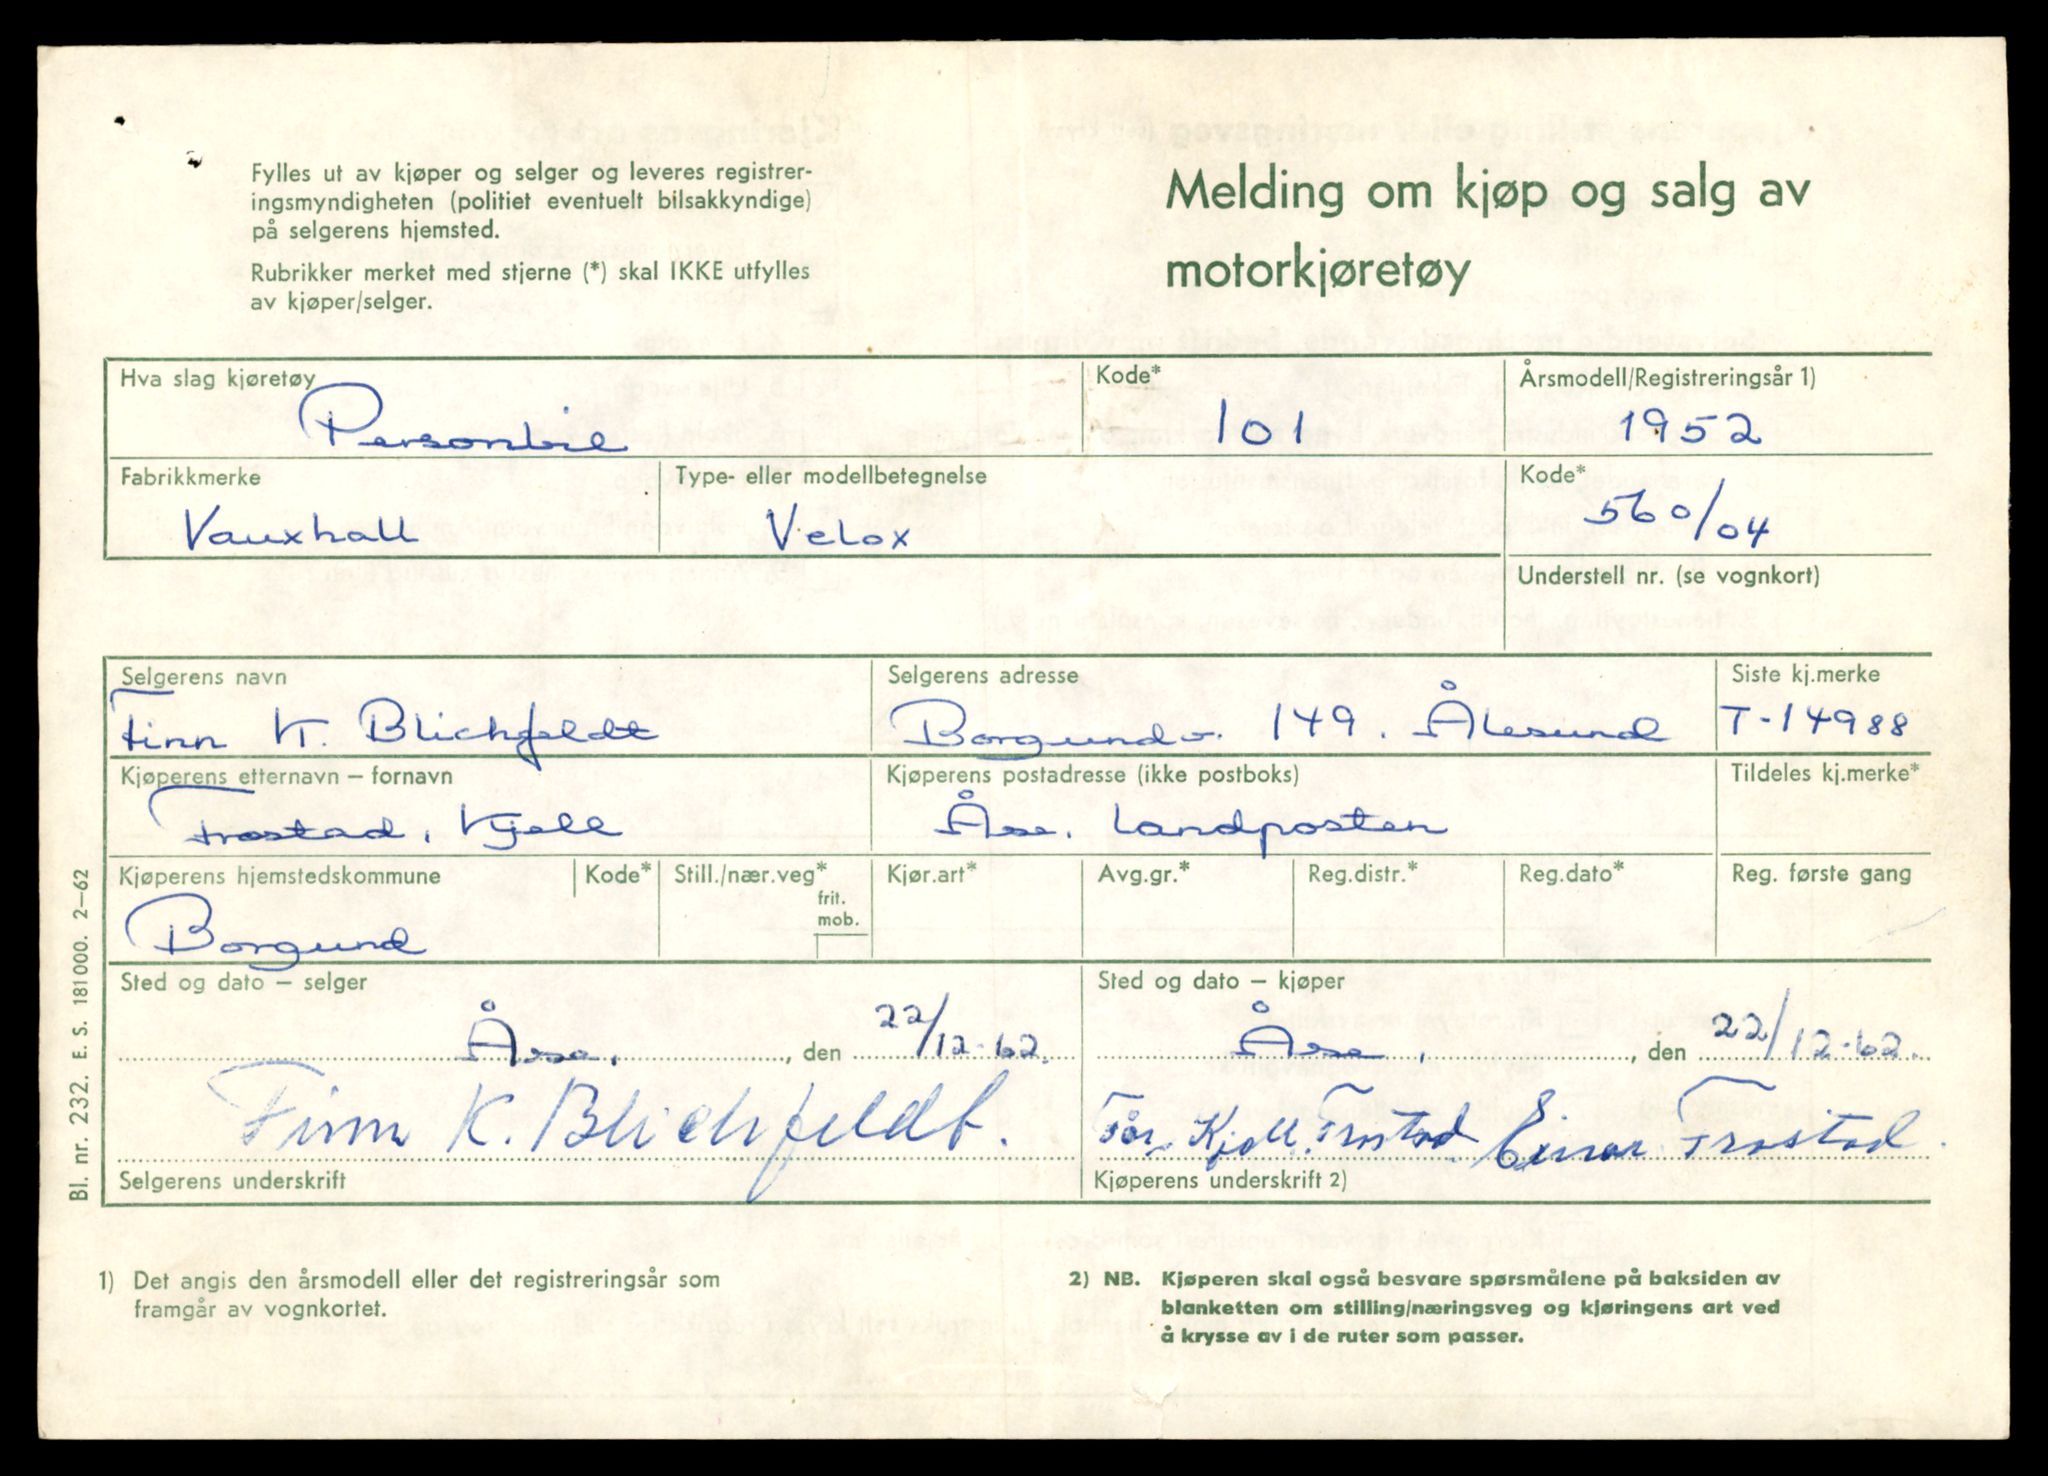 Fylles ut av kjøper og selger og leveres registrer-
ingsmyndigheten (politiet eventuelt bilsakkyndige)
på selgerens hjemsted.
Rubrikker merket med stjerne (*) skal IKKE utfylles
av kjøper/selger.
Melding om kjøp og salg av
motorkjøretøy
Hva slag kjøretøy
Personbil
Kode*
101
Årsmodell/Registreringsår 1)
1952
Fabrikkmerke
Vauxhall
Type- eller modellbetegnelse
Velox
Kode*
560/04
Understell nr. (se vognkort)
Selgerens navn
Finn K. Blichfeldt
Selgerens adresse
Borgundv. 149. Ålesund
Siste kj.merke
T-14988
Kjøperens etternavn – fornavn
Frostad, Kjell
Kjøperens postadresse (ikke postboks)
Åse, Landposten
Tildeles kj.merke*
Kjøperens hjemstedskommune
Borgund
Kode*
Still./nær.veg*
frit.
mob.
Kjør.art*
Avg.gr.*
Reg.distr.*
Reg.dato*
Reg. første gang
Sted og dato – selger
Åse, , den 22/12-62.
Finn K. Blichfeldt.
Selgerens underskrift
Sted og dato – kjøper
Åse, , den 22/12-62.
For Kjell Frostad Einar Frostad.
Kjøperens underskrift 2)
Bl. nr. 232. E. S. 181000. 2–62
1) Det angis den årsmodell eller det registreringsår som
framgår av vognkortet.
2) NB. Kjøperen skal også besvare spørsmålene på baksiden av
blanketten om stilling/næringsveg og kjøringens art ved
å krysse av i de ruter som passer.